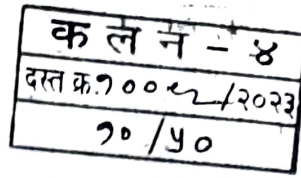 क ल न - ४
दस्त क्र. १००९/२०२३
१०/५०